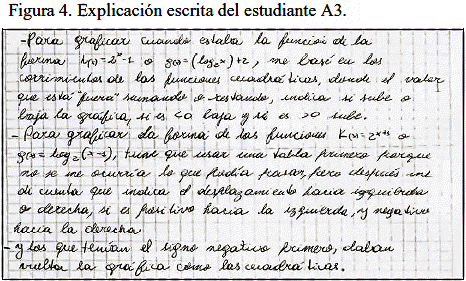 Figura 4. Explicación escrita del estudiante A3.
-Para graficar cuando estaba la función de la
forma h(x)=2ˣ-1 o g(x)=(log₂x)+2, me basé en los
corrimientos de las funciones cuadráticas, donde el valor
que está "fuera" sumando o restando, indica si sube o
baja la gráfica, si es <0 baja y si es >0 sube.
- Para graficar la forma de las funciones K(x)=2ˣ⁺³ o
g(x)=log₂(x-3), tuve que usar una tabla primero porque
no se me ocurría lo que podía pasar, pero después me
di cuenta que indica el desplazamiento hacia izquierda
o derecha, si es positivo hacia la izquierda, y negativo
hacia la derecha
- y los que tenían el signo negativo primero, daban
vuelta la gráfica como las cuadráticas.